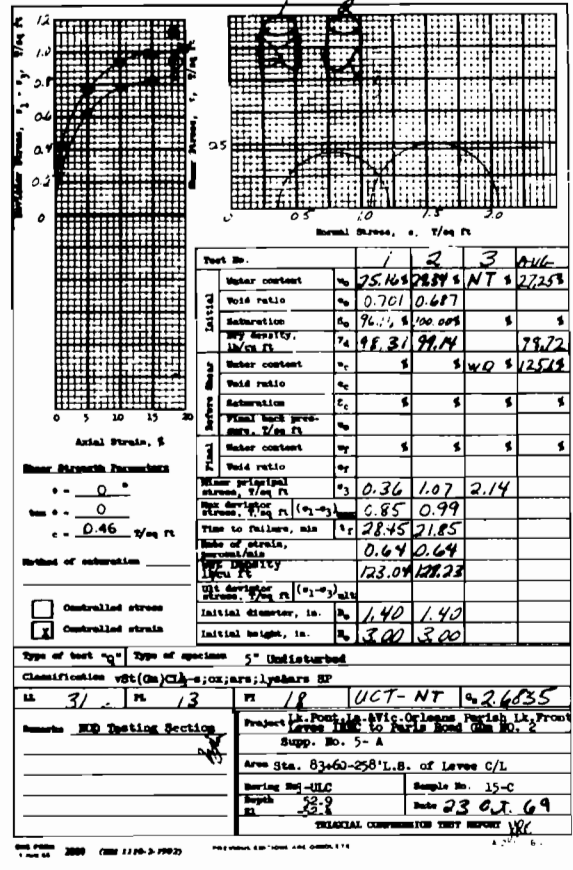 1 2
Deviator Stress, σ1 - σ3, T/sq ft
1.2
1.0
0.8
0.6
0.4
0.2
0
0 5 10 15 20
Axial Strain, %
Shear Stress, τ, T/sq ft
.25
0 0.5 1.0 1.5 2.0
Normal Stress, σ, T/sq ft
Shear Strength Parameters
φ = 0 °
tan φ = 0
c = 0.46 T/sq ft
Method of saturation
Controlled stress
X Controlled strain
Test No. 1 2 3 AVG
Initial
Water content wo 25.16% % NT % 27.25%
Void ratio eo 0.701 0.687
Saturation So % 100.00% % %
Dry density, lb/cu ft γd 98.31 99.14
Before Shear
Water content wc % % WD %
Void ratio ec
Saturation Sc % % % %
Final back pressure, T/sq ft uo
Final
Water content wf % % % %
Void ratio ef
Minor principal stress, T/sq ft σ3 0.36 1.07 2.14
Max deviator stress, T/sq ft (σ1-σ3)max 0.85 0.99
Time to failure, min tf 28.45 21.85
Rate of strain, percent/min 0.64 0.64
Wet Density lb/cu ft 123.04
Ult deviator stress, T/sq ft (σ1-σ3)ult
Initial diameter, in. Do 1.40 1.40
Initial height, in. Ho 3.00 3.00
Type of test "Q" Type of specimen 5" Undisturbed
Classification
LL 31 PL 13 PI 18 UCT-NT Gs 2.6835
Remarks NOD Testing Section
Project Lk.Pont.La.&Vic.Orleans Parish Lk.Front
Levee IHNC to Paris Road NO. 2
Supp. No. 5-A
Area Sta. 83+60-258'L.B. of Levee C/L
Boring No. -ULC Sample No. 15-C
Depth 52.9
El Date 23 OCT. 69
TRIAXIAL COMPRESSION TEST REPORT
ENG FORM 2089 PREVIOUS EDITIONS ARE OBSOLETE